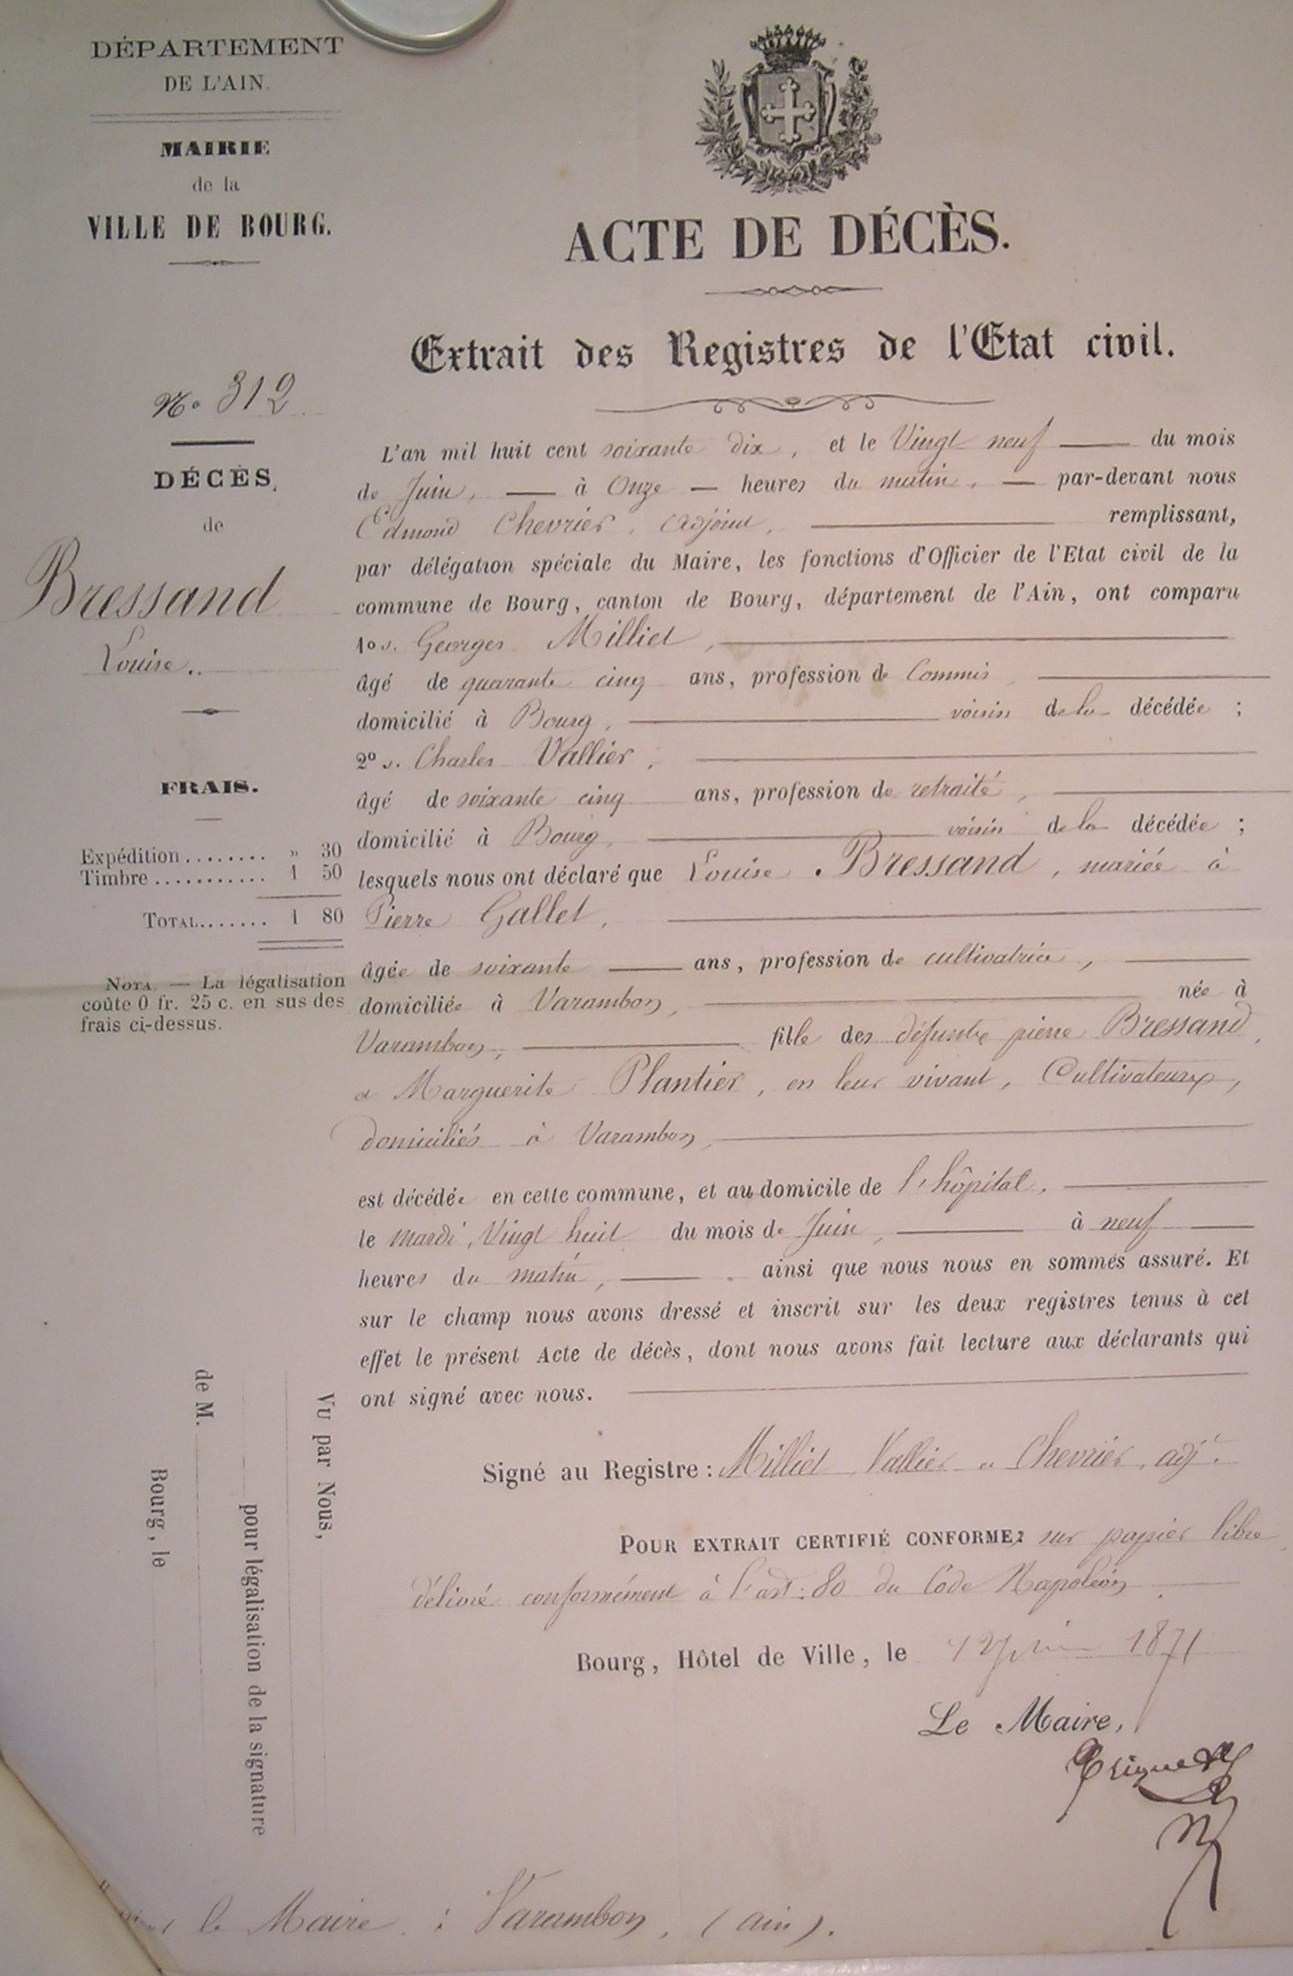 DÉPARTEMENT
DE L'AIN.
MAIRIE
de la
VILLE DE BOURG.
No 312
DÉCÈS,
de
Bressand
Louise..
FRAIS.
Expédition ........ » 30
Timbre ........... 1 50
TOTAL....... 1 80
NOTA. — La légalisation
coûte 0 fr. 25 c. en sus des
frais ci-dessus.
Vu par Nous,
pour légalisation de la signature
de M.
Bourg, le
ACTE DE DÉCÈS.
Extrait des Registres de l'Etat civil.
L'an mil huit cent soixante dix, et le Vingt neuf — du mois
de Juin, — à Onze — heures du matin, — par-devant nous
Edmond Chevrier, Adjoint, — remplissant,
par délégation spéciale du Maire, les fonctions d'Officier de l'Etat civil de la
commune de Bourg, canton de Bourg, département de l'Ain, ont comparu
1o s. Georges Milliet, —
âgé de quarante cinq ans, profession de Commis, —
domicilié à Bourg, — voisin de la décédée ;
2o s. Charles Vallier, —
âgé de soixante cinq ans, profession de retraité, —
domicilié à Bourg, — voisin de la décédée ;
lesquels nous ont déclaré que Louise Bressand, mariée à
Pierre Gallet, —
âgée de soixante — ans, profession de cultivatrice, —
domiciliée à Varambon, — née à
Varambon, — fille des défunts pierre Bressand,
et Marguerite Plantier, en leur vivant, Cultivateurs,
domiciliés à Varambon, —
est décédée en cette commune, et au domicile de l'hôpital, —
le mardi, Vingt huit du mois de Juin, — à neuf —
heures du matin, — ainsi que nous nous en sommes assuré. Et
sur le champ nous avons dressé et inscrit sur les deux registres tenus à cet
effet le présent Acte de décès, dont nous avons fait lecture aux déclarants qui
ont signé avec nous. —
Signé au Registre : Milliet, Vallier et Chevrier, adjt.
POUR EXTRAIT CERTIFIÉ CONFORME, sur papier libre,
délivré conformément à l'art. 80 du Code Napoléon.
Bourg, Hôtel de Ville, le 1871
Le Maire,
le Maire : Varambon, (ain).